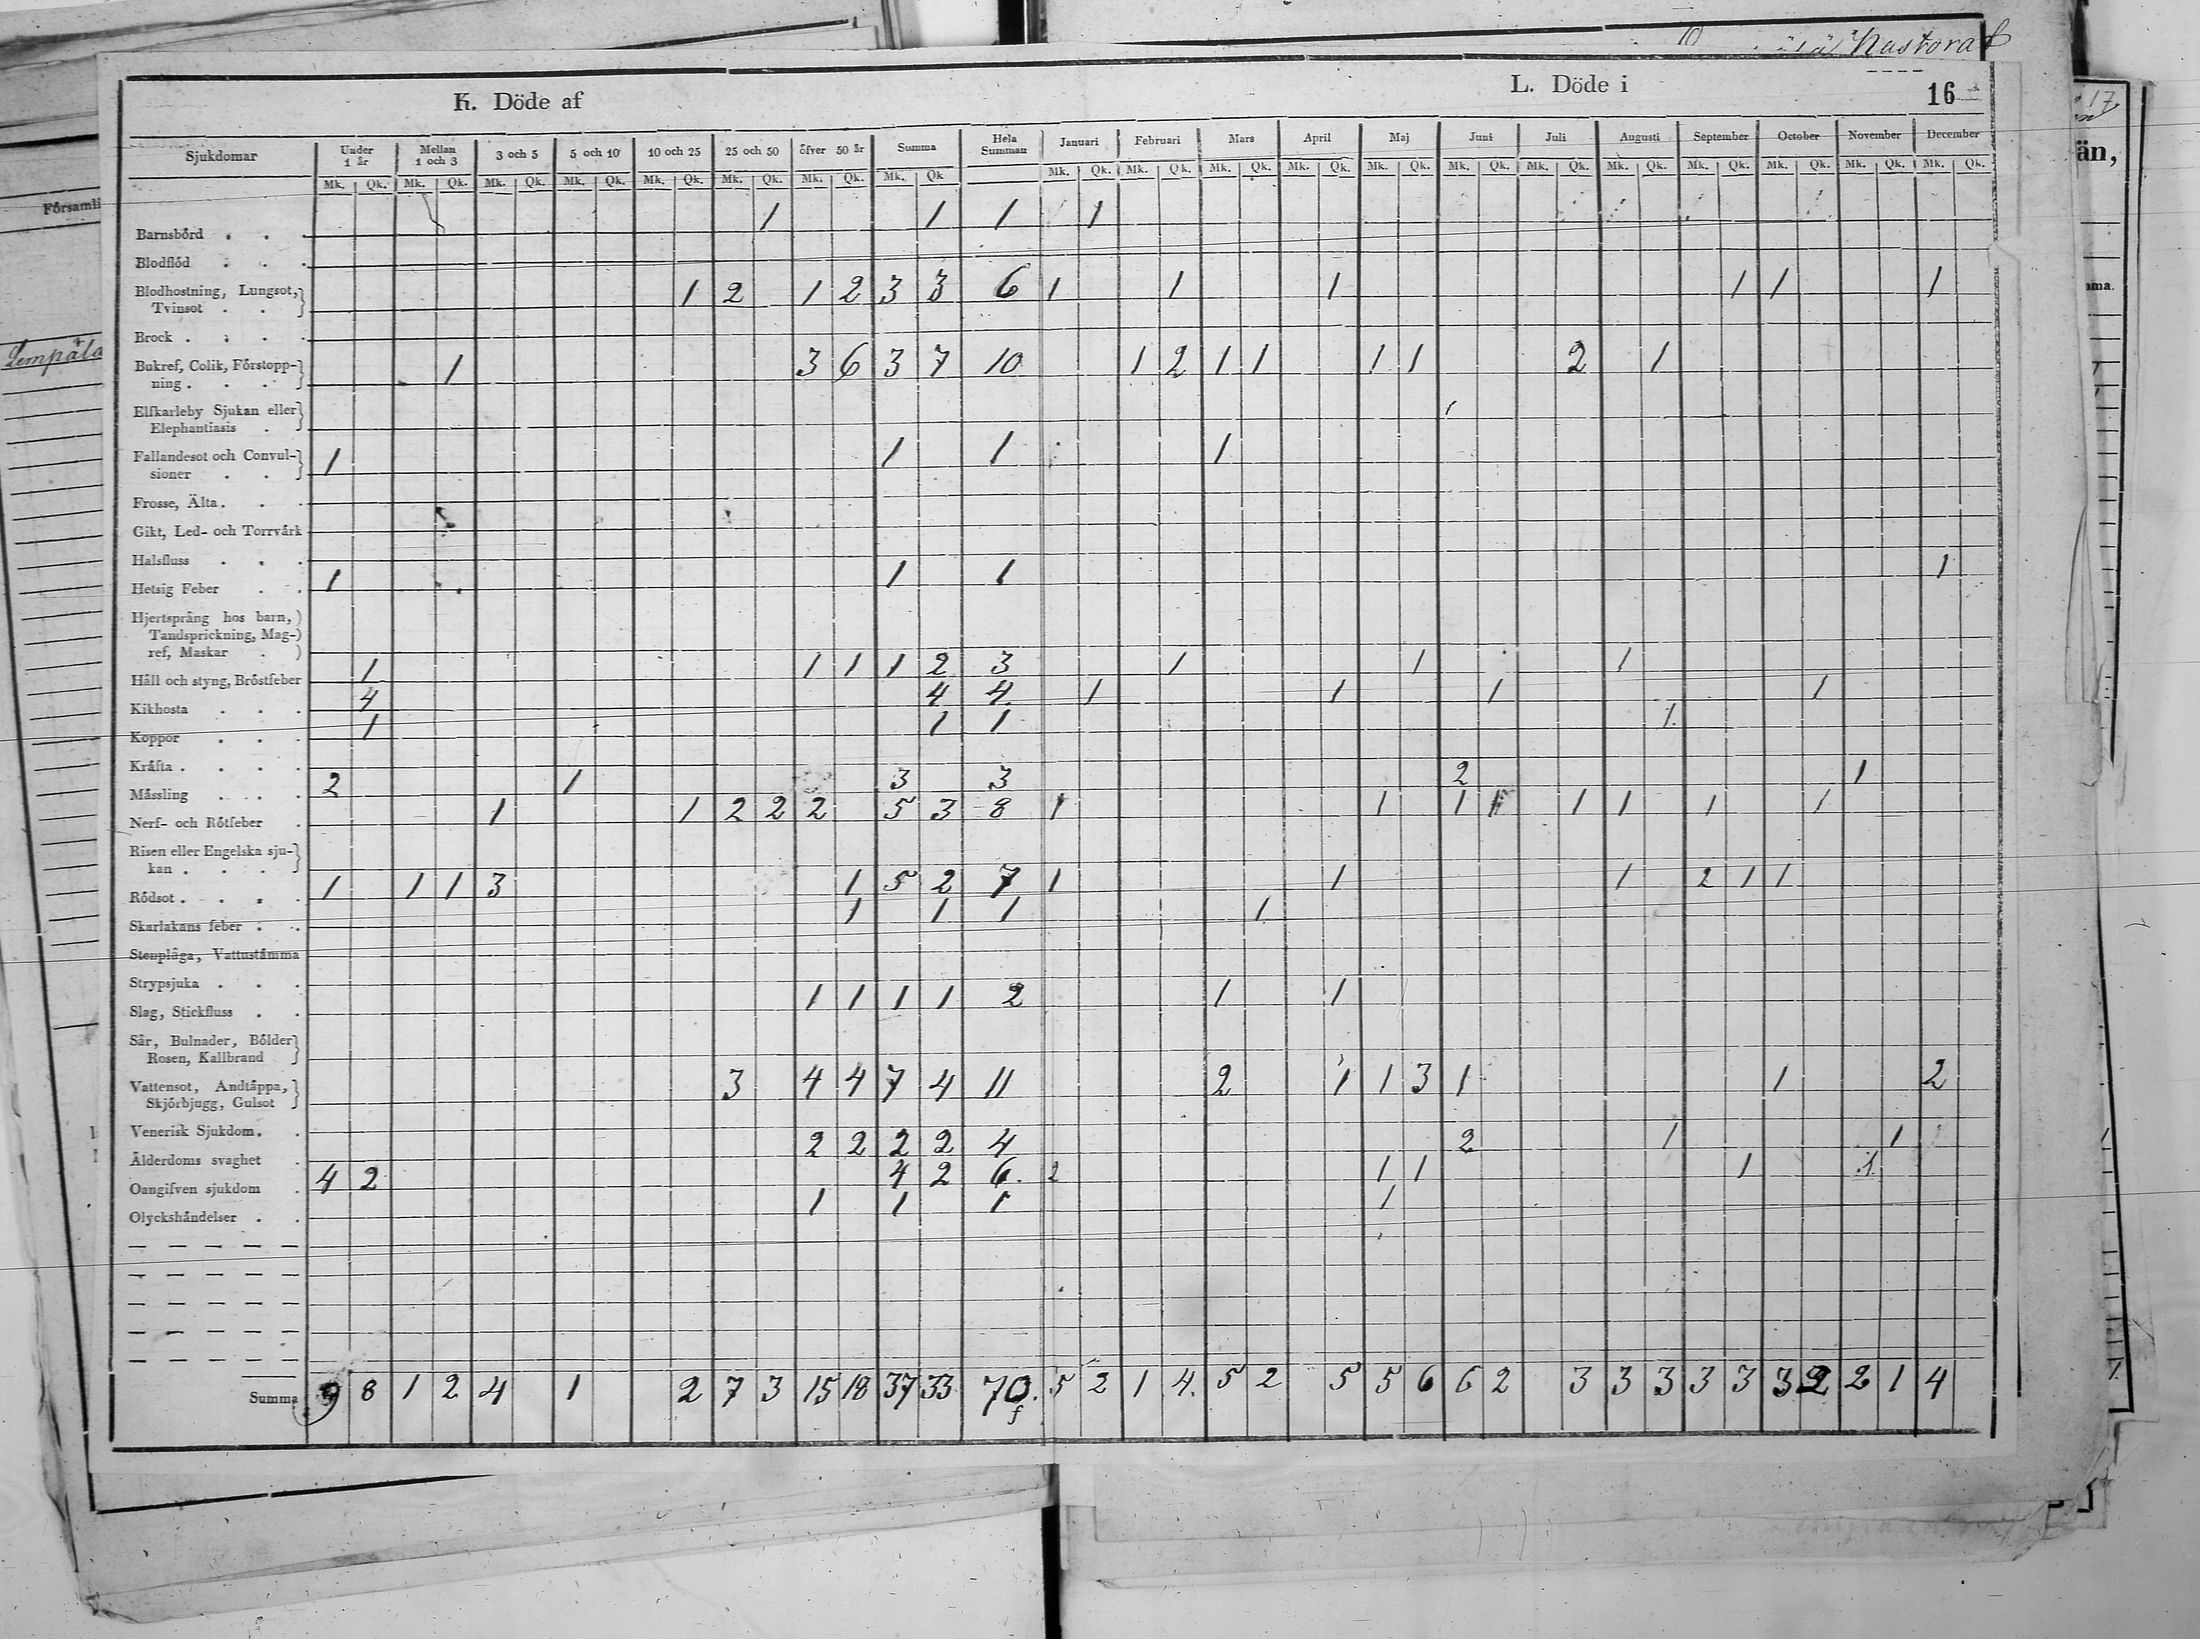 Pastorat
17
än,
mma.
Församli
Lempäla
K. Döde af
L. Döde i
16
Sjukdomar | Under 1 år | Mellan 1 och 3 | 3 och 5 | 5 och 10 | 10 och 25 | 25 och 50 | öfver 50 år | Summa | Hela Summan | Januari | Februari | Mars | April | Maj | Juni | Juli | Augusti | September | October | November | December
Mk. Qk. Mk. Qk. Mk. Qk. Mk. Qk. Mk. Qk. Mk. Qk. Mk. Qk. Mk. Qk Mk. Qk. Mk. Qk. Mk. Qk. Mk. Qk. Mk. Qk. Mk. Qk. Mk. Qk. Mk. Qk. Mk. Qk. Mk. Qk. Mk. Qk. Mk. Qk.
Barnsbörd . . . 1 1 1 1
Blodflöd . . .
Blodhostning, Lungsot,
Tvinsot . . 1 2 1 2 3 3 6 1 1 1 1 1 1
Brock . . . .
Bukref, Colik, Förstopp-
ning . . . 1 3 6 3 7 10 1 2 1 1 1 1 2 1
Elfkarleby Sjukan eller
Elephantiasis .
Fallandesot och Convul-
sioner . . 1 1 1 1
Frosse, Älta . . .
Gikt, Led- och Torrvärk
Halsfluss . . .
Hetsig Feber . . 1 1 1 1
Hjertsprång hos barn,
Tandsprickning, Mag-
ref, Maskar .
Håll och styng, Bröstfeber 1 1 1 1 2 3 1 1 1
Kikhosta . . . 4 4 4. 1 1 1 1
Koppor . . . 1 1 1 1
Kräfta . . . .
Mässling . . . 2 1 3 3 2 1
Nerf- och Rötfeber . 1 1 2 2 2 5 3 8 1 1 1 1 1 1 1 1
Risen eller Engelska sju-
kan . . . .
Rödsot . . . . 1 1 1 3 1 5 2 7 1 1 1 2 1 1
Skarlakans feber . . 1 1 1 1
Stenplåga, Vattustämma
Strypsjuka . . .
Slag, Stickfluss . . 1 1 1 1 2 1 1
Sår, Bulnader, Bölder
Rosen, Kallbrand
Vattensot, Andtäppa,
Skjörbjugg, Gulsot 3 4 4 7 4 11 2 1 1 3 1 1 2
Venerisk Sjukdom . .
Ålderdoms svaghet . 2 2 2 2 4 2 1 1
Oangifven sjukdom . 4 2 4 2 6. 2 1 1 1 1
Olyckshändelser . . 1 1 1 1
Summa 9 8 1 2 4 1 2 7 3 15 18 37 33 70. 5 2 1 4. 5 2 5 5 6 6 2 3 3 3 3 3 3 2 2 1 4